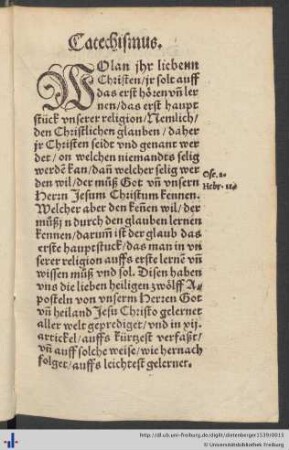 Catechismus.
WOlan jhr liebenn
Christen/jr solt auff
das erst hören vñ ler
nen/das erst haupt
stück vnserer religion/Nemlich/
den Christlichen glauben/daher
jr Christen seidt vnd genant wer
det/on welchen niemandts selig
werdẽ kan/dañ welcher selig wer
den wil/der müß Got vñ vnsern
Herrn Jesum Christum kennen.
Welcher aber den keñen wil/der
müßjn durch den glauben lernen
kennen/darum̃ ist der glaub das
erste hauptstuck/das man in vn
serer religion auffs erste lernẽ vñ
wissen müß vnd sol. Disen haben
vns die lieben heiligen zwölff A-
posteln von vnserm Herren Got
vñ heiland Jesu Christo gelernet
aller welt geprediget/vnd in xij.
artickel/auffs kürtzest verfaßt/
vñ auff solche weise/wie hernach
folget/auffs leichtest gelernet.
Ose. 2.
Hebr. 11.
http://dl.ub.uni-freiburg.de/diglit/datenberger1539/0013
© Universitätsbibliothek Freiburg